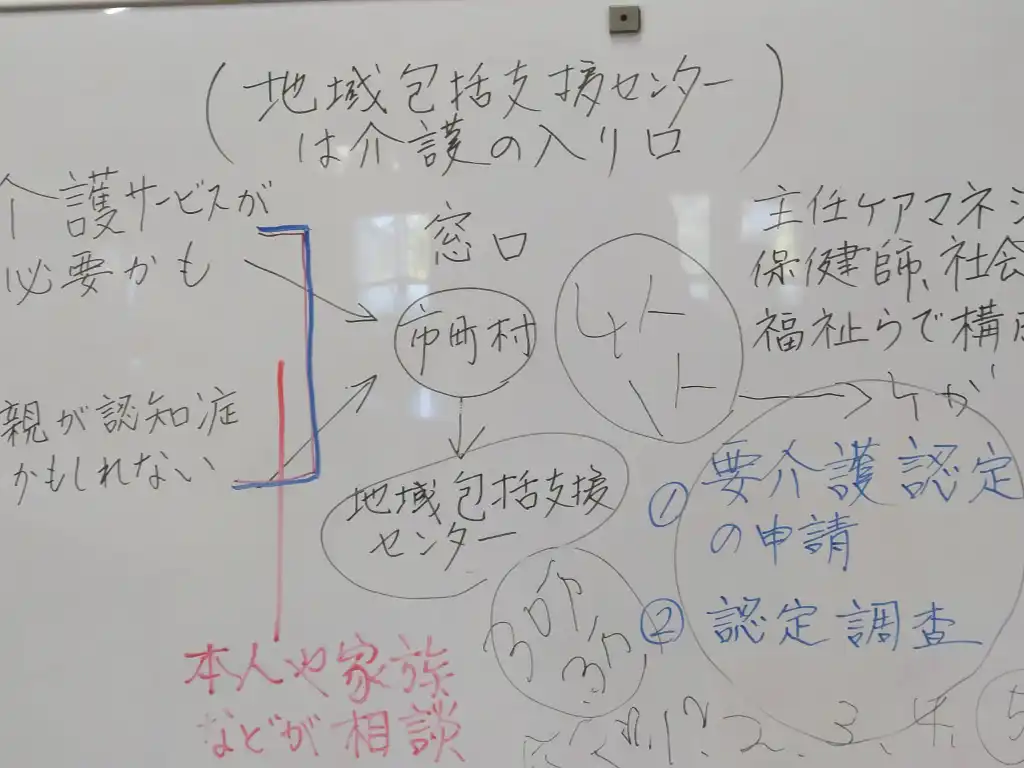 (地域包括支援センター
は介護の入り口)
介護サービスが
必要かも
親が認知症
かもしれない
本人や家族
などが相談
窓口
市町村
地域包括支援
センター
主任ケアマネジ
保健師、社会
福祉らで構成
① 要介護認定
の申請
② 認定調査
2、3、4、5